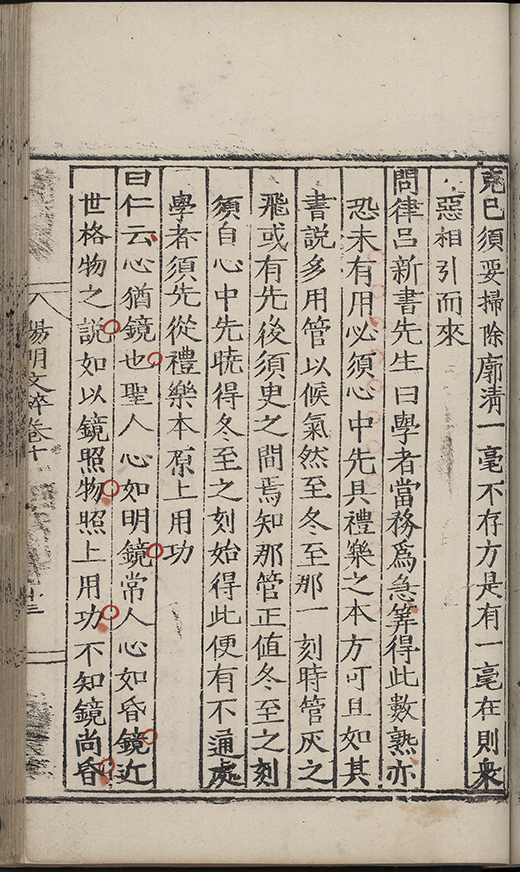 克己須要掃除廓清一毫不存方是有一毫在則衆
惡相引而來
問律呂新書先生曰學者當務爲急筭得此數熟亦
恐未有用必須心中先具禮樂之本方可且如其
書說多用管以候氣然至冬至那一刻時管灰之
飛或有先後須臾之間焉知那管正值冬至之刻
須自心中先曉得冬至之刻始得此便有不通處
學者須先從禮樂本原上用功
曰仁云心猶鏡也聖人心如明鏡常人心如昏鏡近
世格物之說如以鏡照物照上用功不知鏡尚昏
陽明文粹卷十